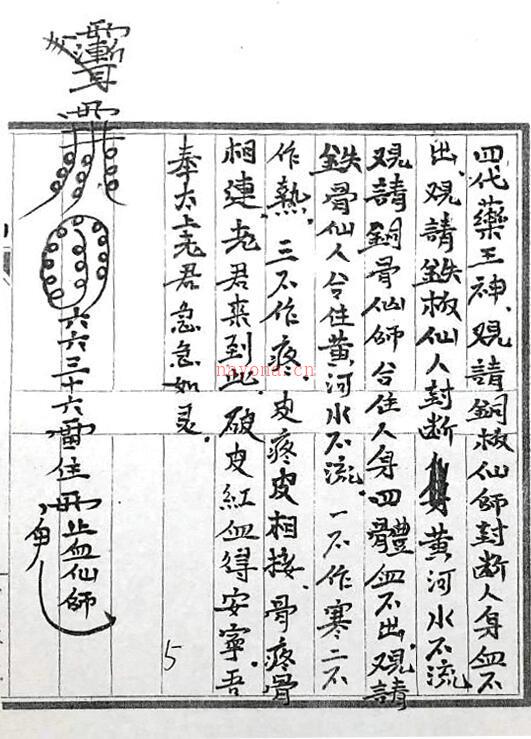 四代藥王神．观請銅板仙師封断人身血不
出．观請鉄板仙人封断黄河水不流
观請銅骨仙師台住人身四體血不出．观請
鉄骨仙人台住黄河水不流．一不作寒二不
作熱．三不作疼．皮疼皮相接．骨疼骨
相連．老君来到此．破皮紅血得安寧．吾
奉太上老君急急如灵．
六六三十六雷住 止血仙師
5
nayona.cn